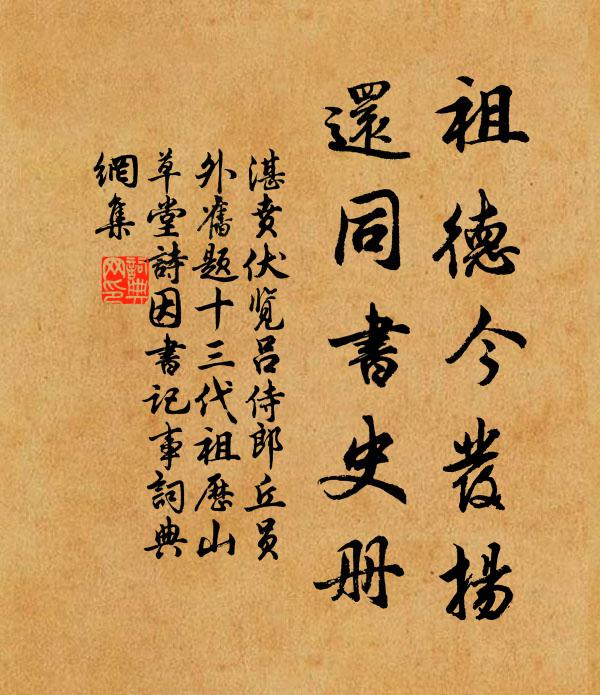 祖德今發揚
還同書史册
湛賁伏览吕侍郎丘員
外舊题十三代祖歷山
草堂詩因書记事詞典
網集
詞典
网印